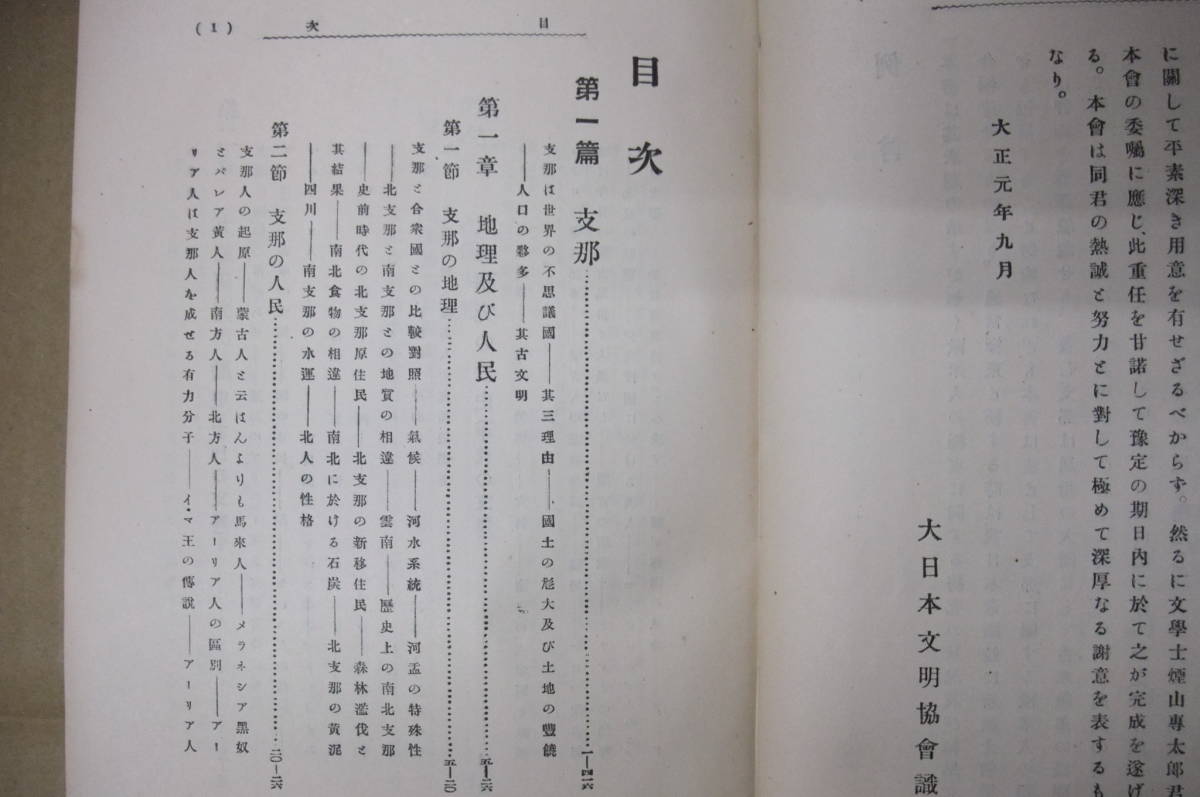 に關して平素深き用意を有せざるべからず。然るに文學士煙山專太郎君
本會の委囑に應じ、此重任を甘諾して豫定の期日内に於て之が完成を遂げ
る。本會は同君の熱誠と努力とに對して極めて深厚なる謝意を表するも
なり。
大正元年九月
大日本文明協會識
目次
(1)
目次
第一篇 支那……一―四二六
支那は世界の不思議國――其三理由――國土の尨大及び土地の豐饒
――人口の夥多――其古文明
第一章 地理及び人民……五―二六
第一節 支那の地理……五―二〇
支那と合衆國との比較對照――氣候――河水系統――河盂の特殊性
――北支那と南支那との地質の相違――雲南――歷史上の南北支那
――史前時代の北支那原住民――北支那の新移住民――森林濫伐と
其結果――南北食物の相違――南北に於ける石炭――北支那の黄泥
――四川――南支那の水運――北人の性格
第二節 支那の人民……二〇―二六
支那人の起原――蒙古人と云はんよりも馬來人――メラネシア黑奴
とパレア黄人――南方人――北方人――アーリア人の區別――アー
リア人は支那人を成せる有力分子――イ・マ王の傳說――アーリア人